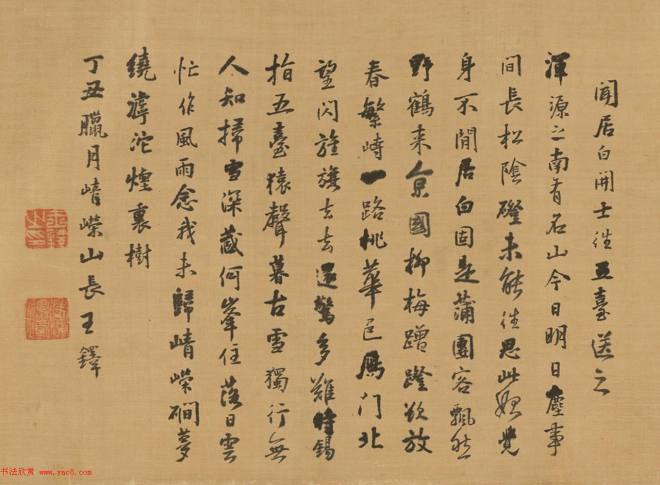 聞居白開士往五臺送之
渾源之南有名山今日明日塵事
間長松陰磴未能往思此始覺
身不閒居白固是蒲團客飄然
野鶴來京國柳梅蹭蹬欲放
春繁峙一路桃華邑鴈門北
望閃旌旗去去還驚多難時錫
指五臺猿聲暮古雪獨行無
人知掃雪深藏何峯住落日雲
忙作風雨念我未歸崝嶸磵夢
繞滹沱煙裏樹
丁丑臘月崝嶸山長王鐸
书法欣赏 www.yac8.com